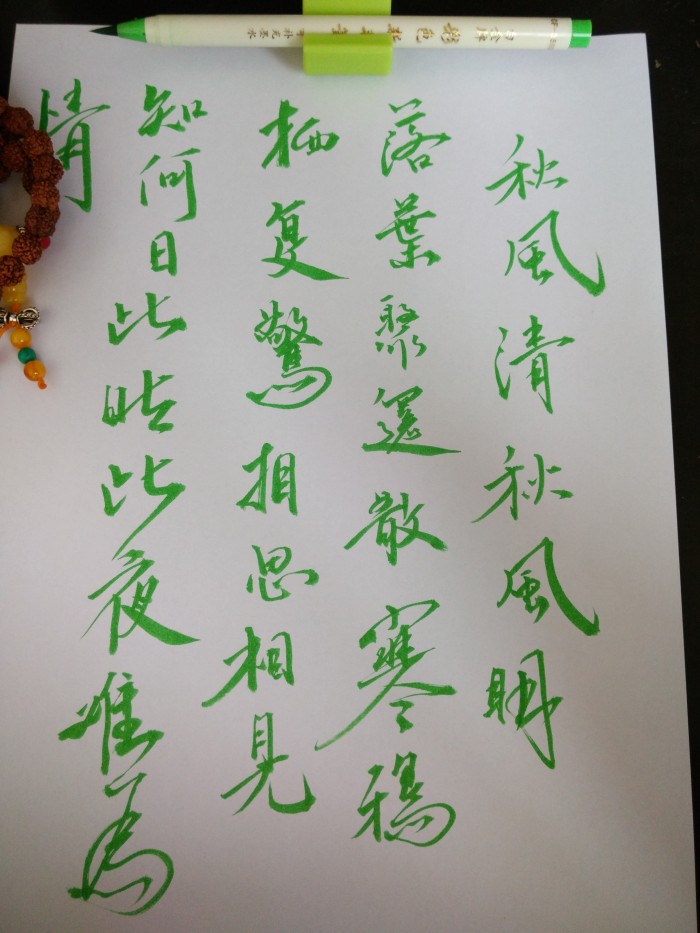 秋風清秋風明
落葉聚還散寒鴉
栖复驚相思相見
知何日此時此夜难為
情